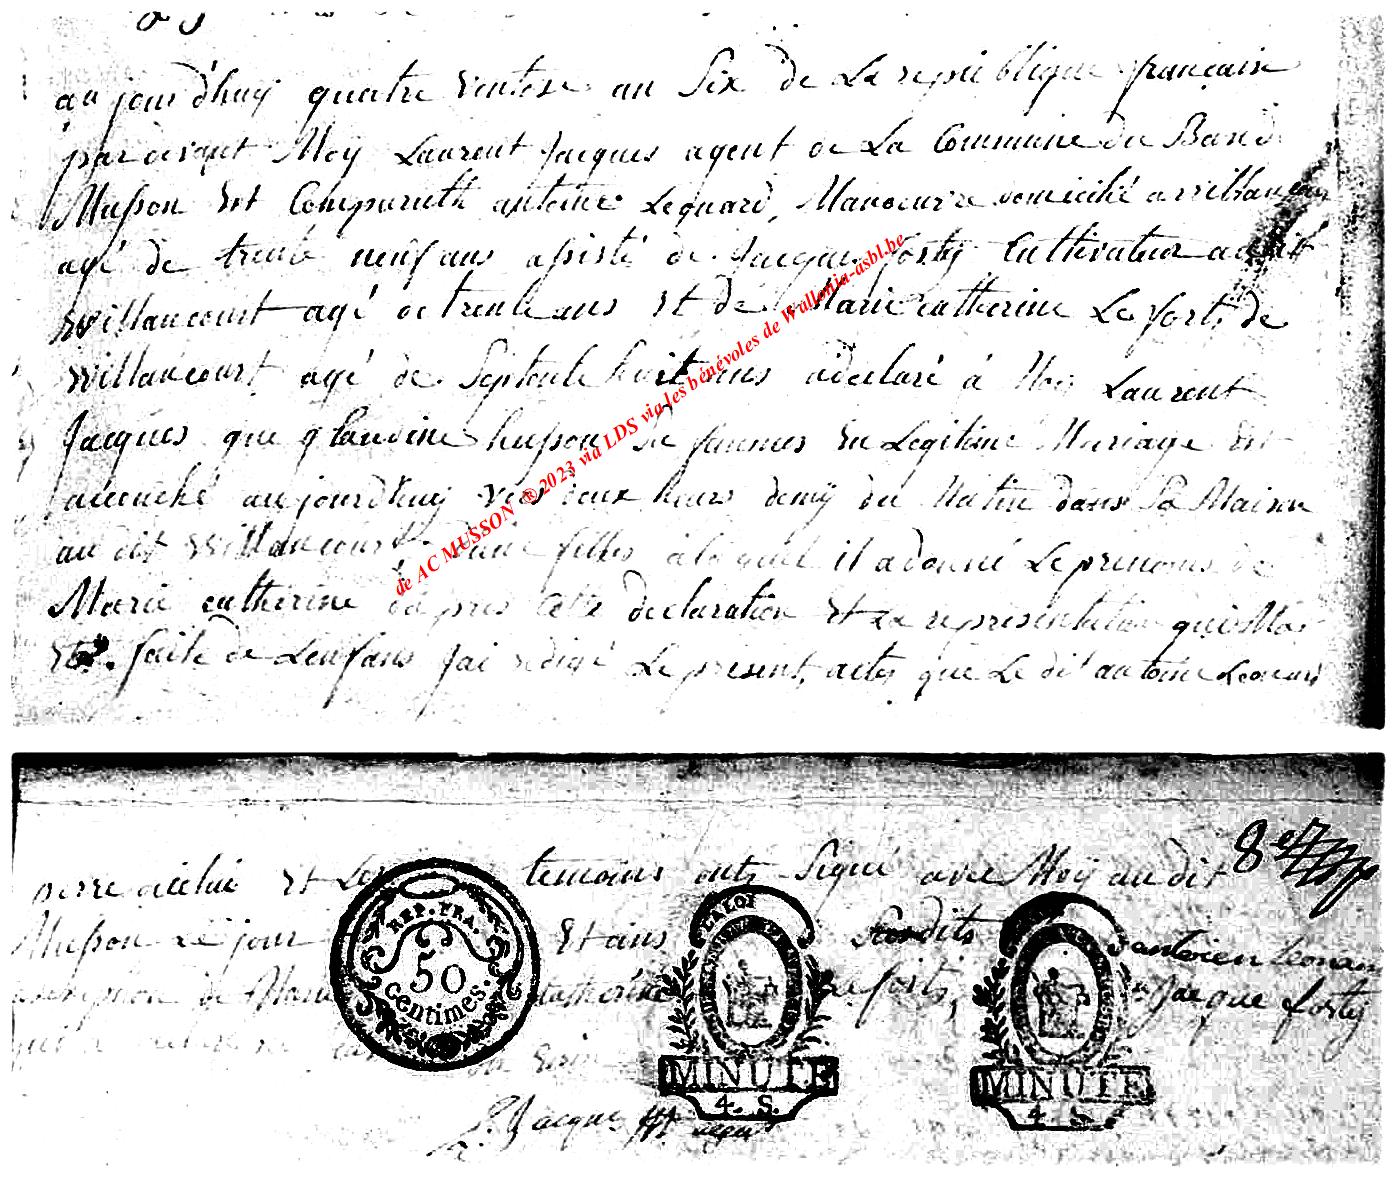 aujourd'huy quatre ventose an Six de La republique francaise
pardevant Moy Laurent Jacques agent de La Commune du Ban de
Musson Est Comparuth antoine Leonard, Manoeuvre domicilié a willancourt
agé de trente neuf ans assisté de Jacque forty Cultivateur audit
willancourt agé de trente ans Et de Marie catherine Le fort, de
willancourt agé de Septente huit ans adeclaré à Moy Laurent
Jacques que glaudine husson sa fammes En Legitime Mariage Est
accouché aujourdhuy vers deux heurs demÿ du Matin dans Sa Maison
au dit willancourt d'une filles à laquel il a donné Le prenoms de
Marie catherine da pres cette declaration Et La representation qui Mas
Eté faite de Lenfans Jai redigé Le present, actes que Le dit antoine Leonard
de AC MUSSON ® 2023 via LDS via les bénévoles de Wallonia-asbl.be
perre dicelui Et Les temoins onts Signé avec Moy au dit
Musson Le jour Et ans Susdits antoien Leonard
de Marie catherine Le forts, Jacque forty
REP. FRA.
50
centimes.
LA LOI
MINUTE
4. S.
MINUTE
4. S.
L. Jacque agent